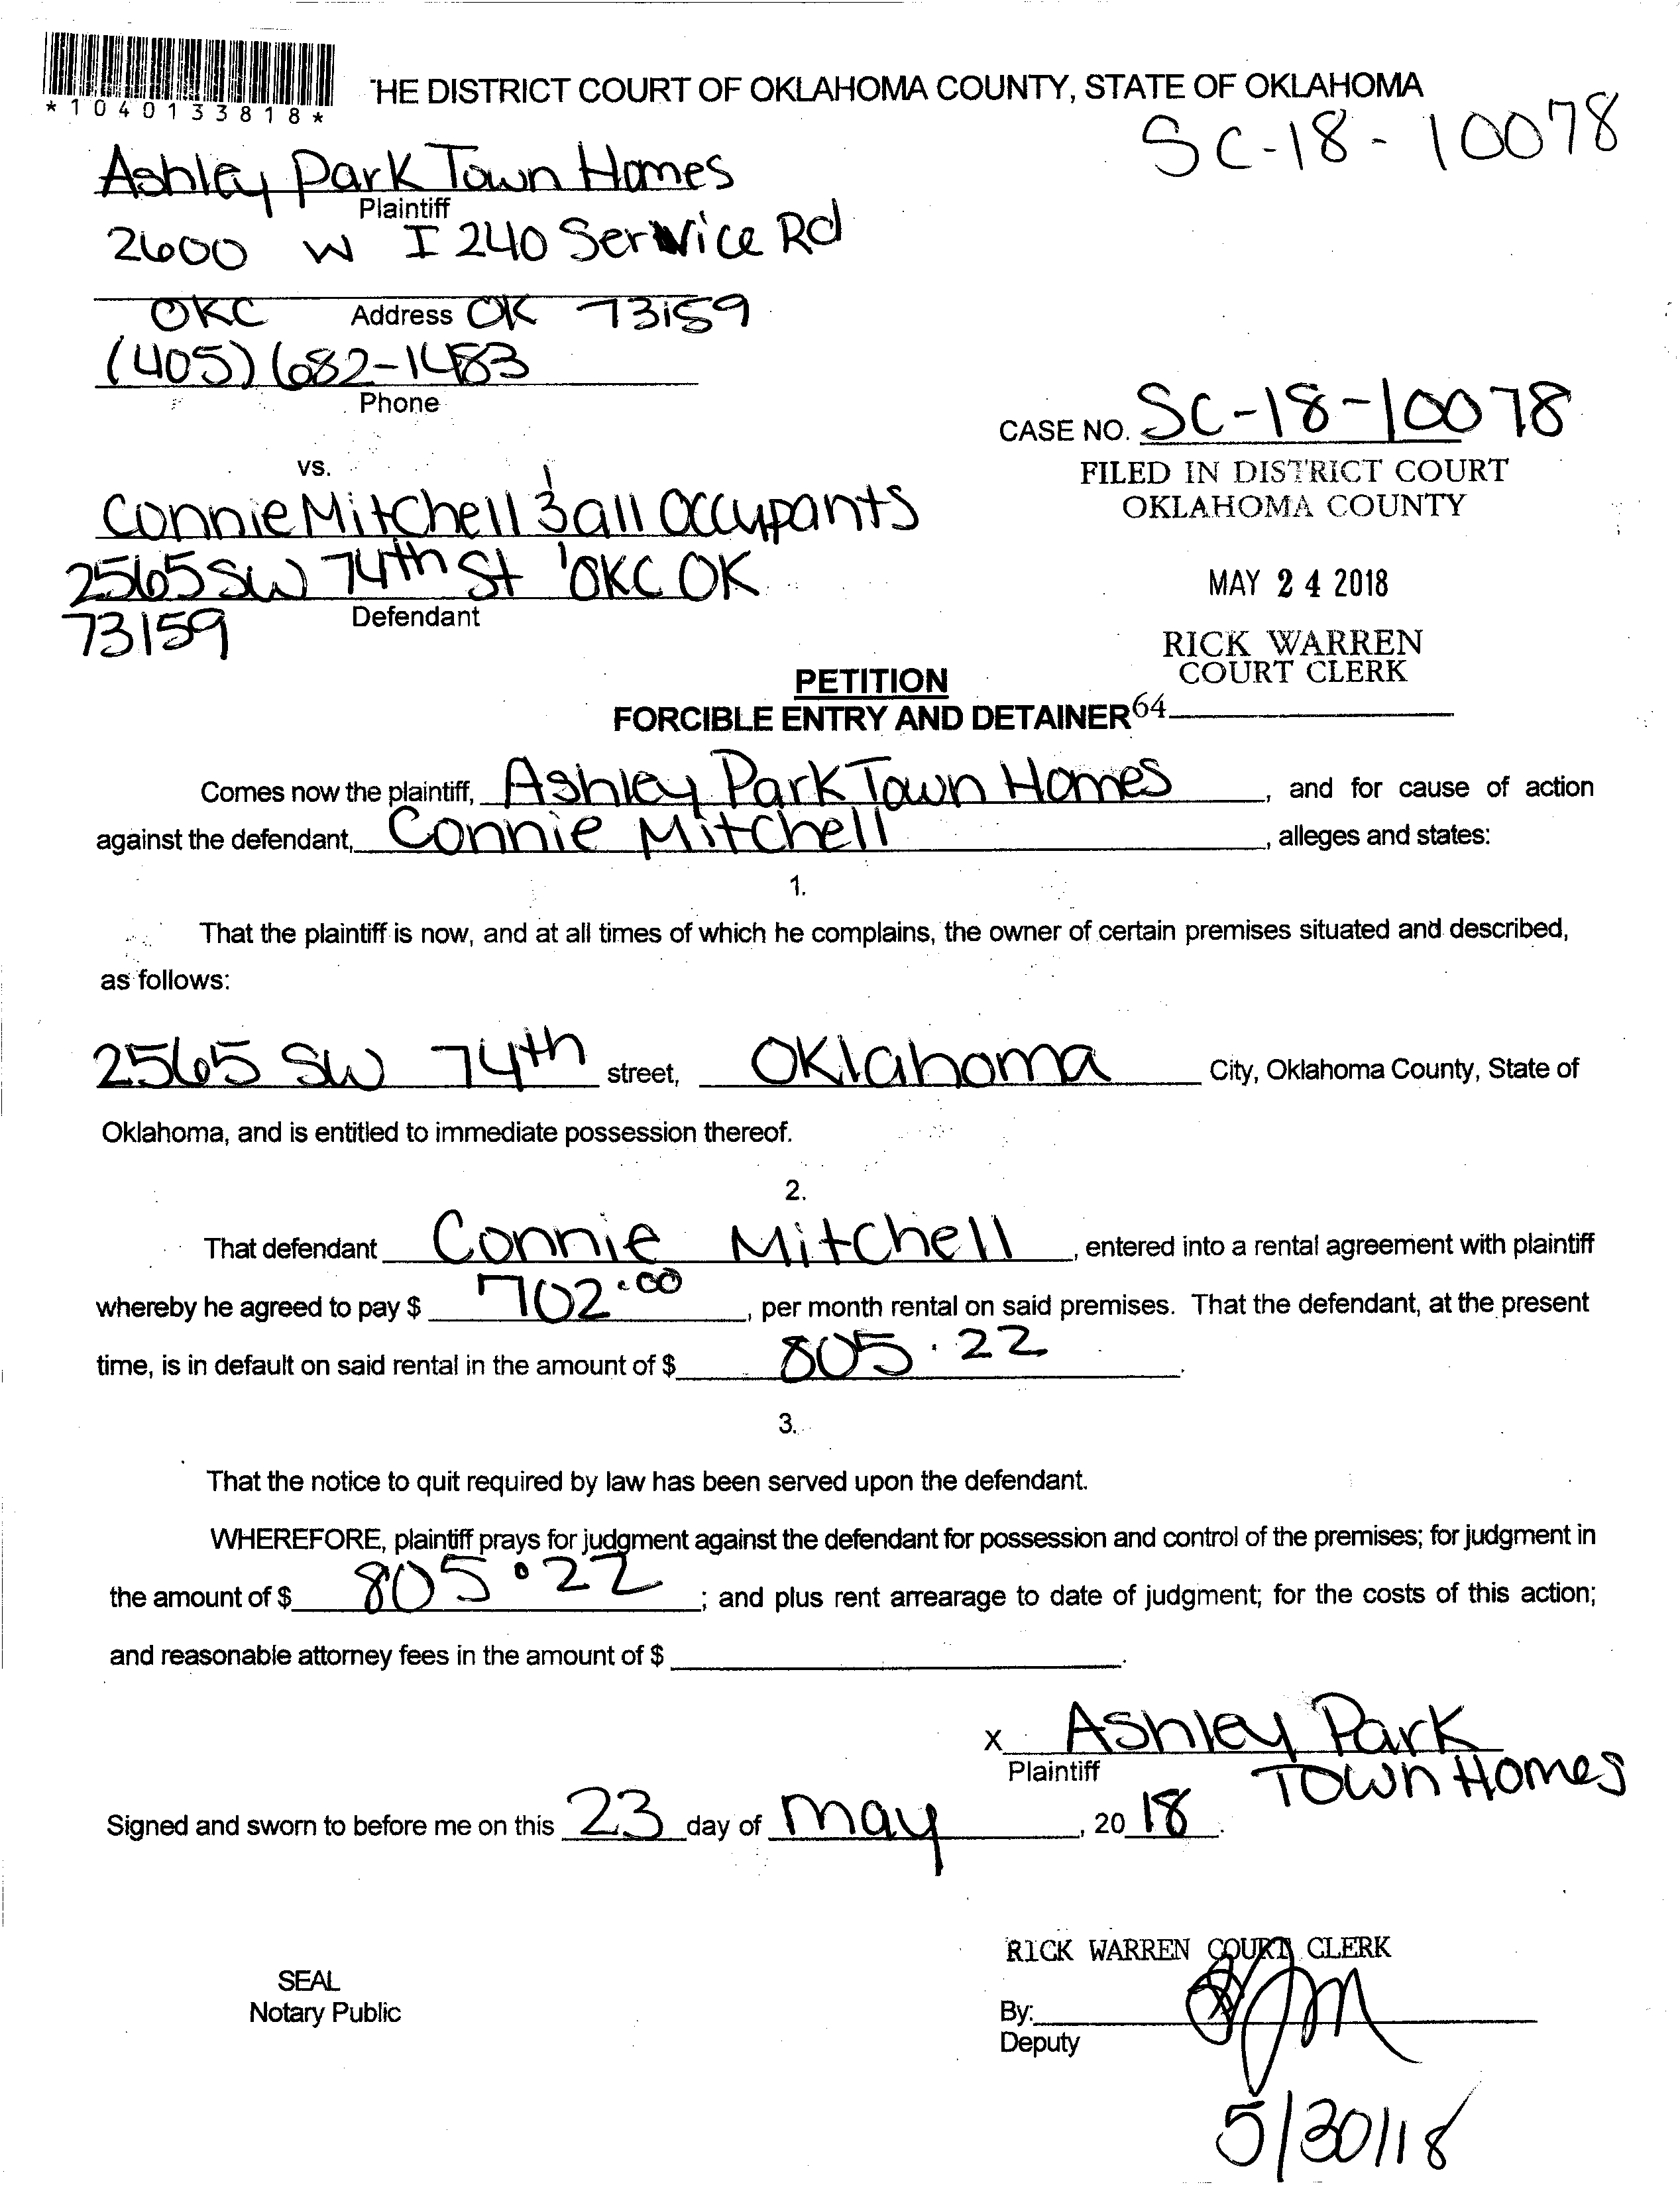 *1040133818*
THE DISTRICT COURT OF OKLAHOMA COUNTY, STATE OF OKLAHOMA
SC-18-10078
Ashley Park Town Homes
Plaintiff
2600 W I 240 Service Rd
OKC Address OK 73159
(405) 682-1483
Phone
CASE NO. SC-18-10078
vs.
FILED IN DISTRICT COURT
OKLAHOMA COUNTY
Connie Mitchell & all occupants
2565 SW 74th St OKC OK
73159
Defendant
MAY 24 2018
RICK WARREN
COURT CLERK
PETITION
FORCIBLE ENTRY AND DETAINER 64
Comes now the plaintiff, Ashley Park Town Homes, and for cause of action
against the defendant, Connie Mitchell, alleges and states:
1.
That the plaintiff is now, and at all times of which he complains, the owner of certain premises situated and described,
as follows:
2565 SW 74th street, Oklahoma City, Oklahoma County, State of
Oklahoma, and is entitled to immediate possession thereof.
2.
That defendant Connie Mitchell, entered into a rental agreement with plaintiff
whereby he agreed to pay $ 702.00, per month rental on said premises. That the defendant, at the present
time, is in default on said rental in the amount of $ 805.22.
3.
That the notice to quit required by law has been served upon the defendant.
WHEREFORE, plaintiff prays for judgment against the defendant for possession and control of the premises; for judgment in
the amount of $ 805.22; and plus rent arrearage to date of judgment; for the costs of this action;
and reasonable attorney fees in the amount of $ .
X Ashley Park
Plaintiff Town Homes
Signed and sworn to before me on this 23 day of May, 2018.
RICK WARREN COURT CLERK
SEAL
Notary Public
By:
Deputy
5/30/18